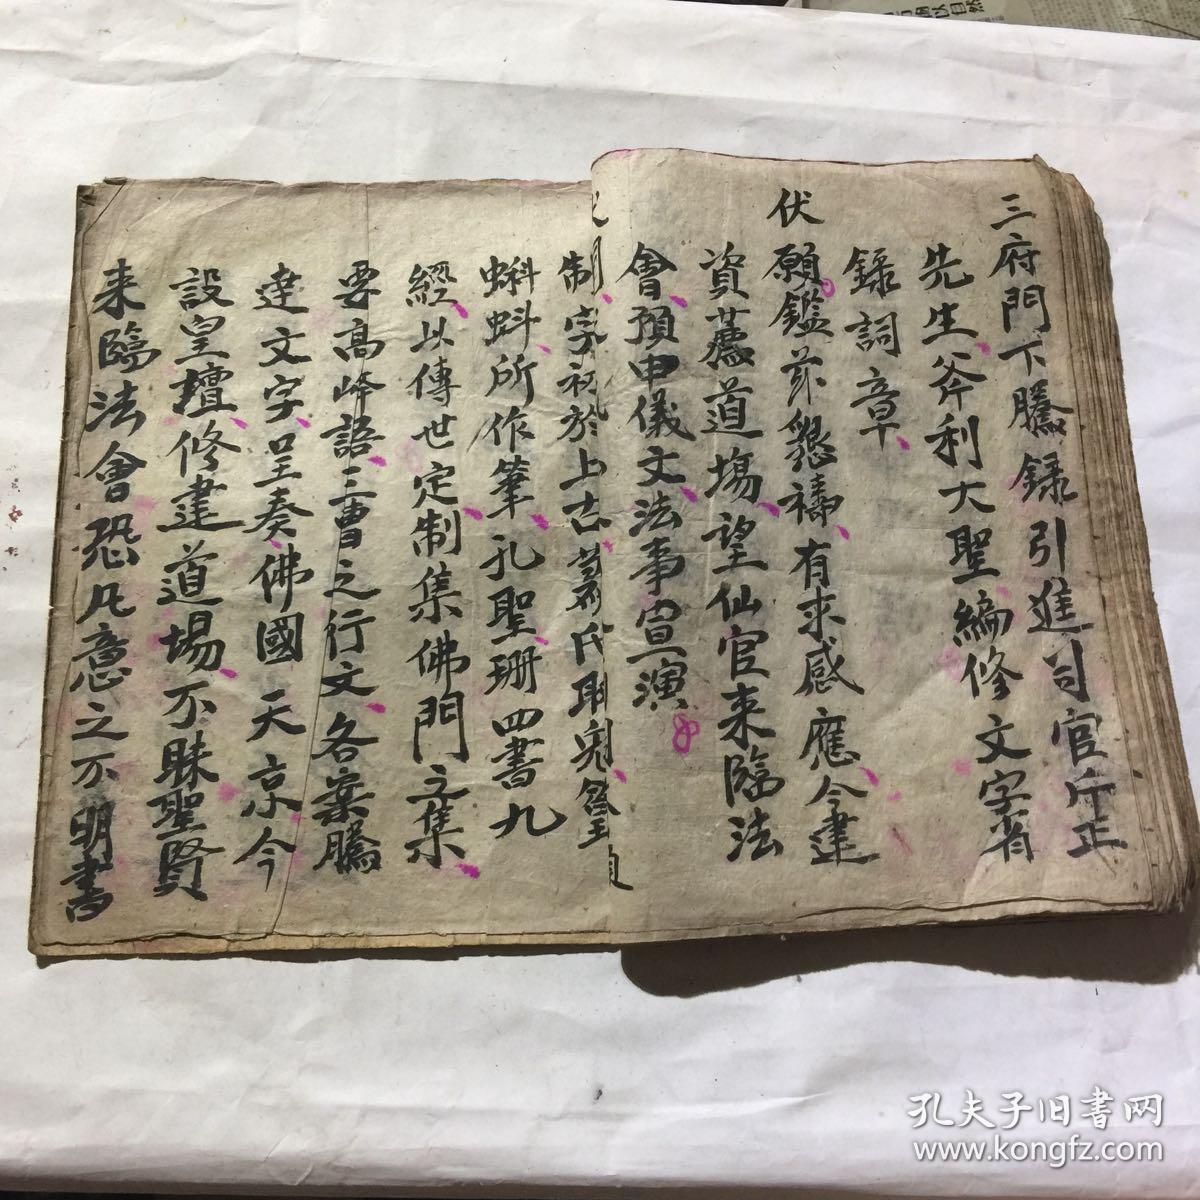 三府門下騰錄引進司官斤正
先生斧利大聖編修文字省
錄詞章
伏
願鑑茲懇禱有求感應今建
資薦道場望仙官來臨法
會預申儀文法事宣演
制字初於上古蒼氏
蝌蚪所作筆孔聖珊四書九
經以傳世定制集佛門之集
要高峰語三曹之行文各案騰
達文字呈奏佛國天京今
設皇壇修建道場不昧聖賢
来臨法會恐凡意之不明書
孔夫子旧书网
www.kongfz.com